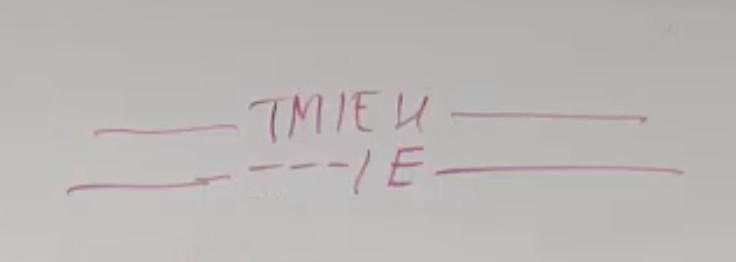 TMIEU
IE